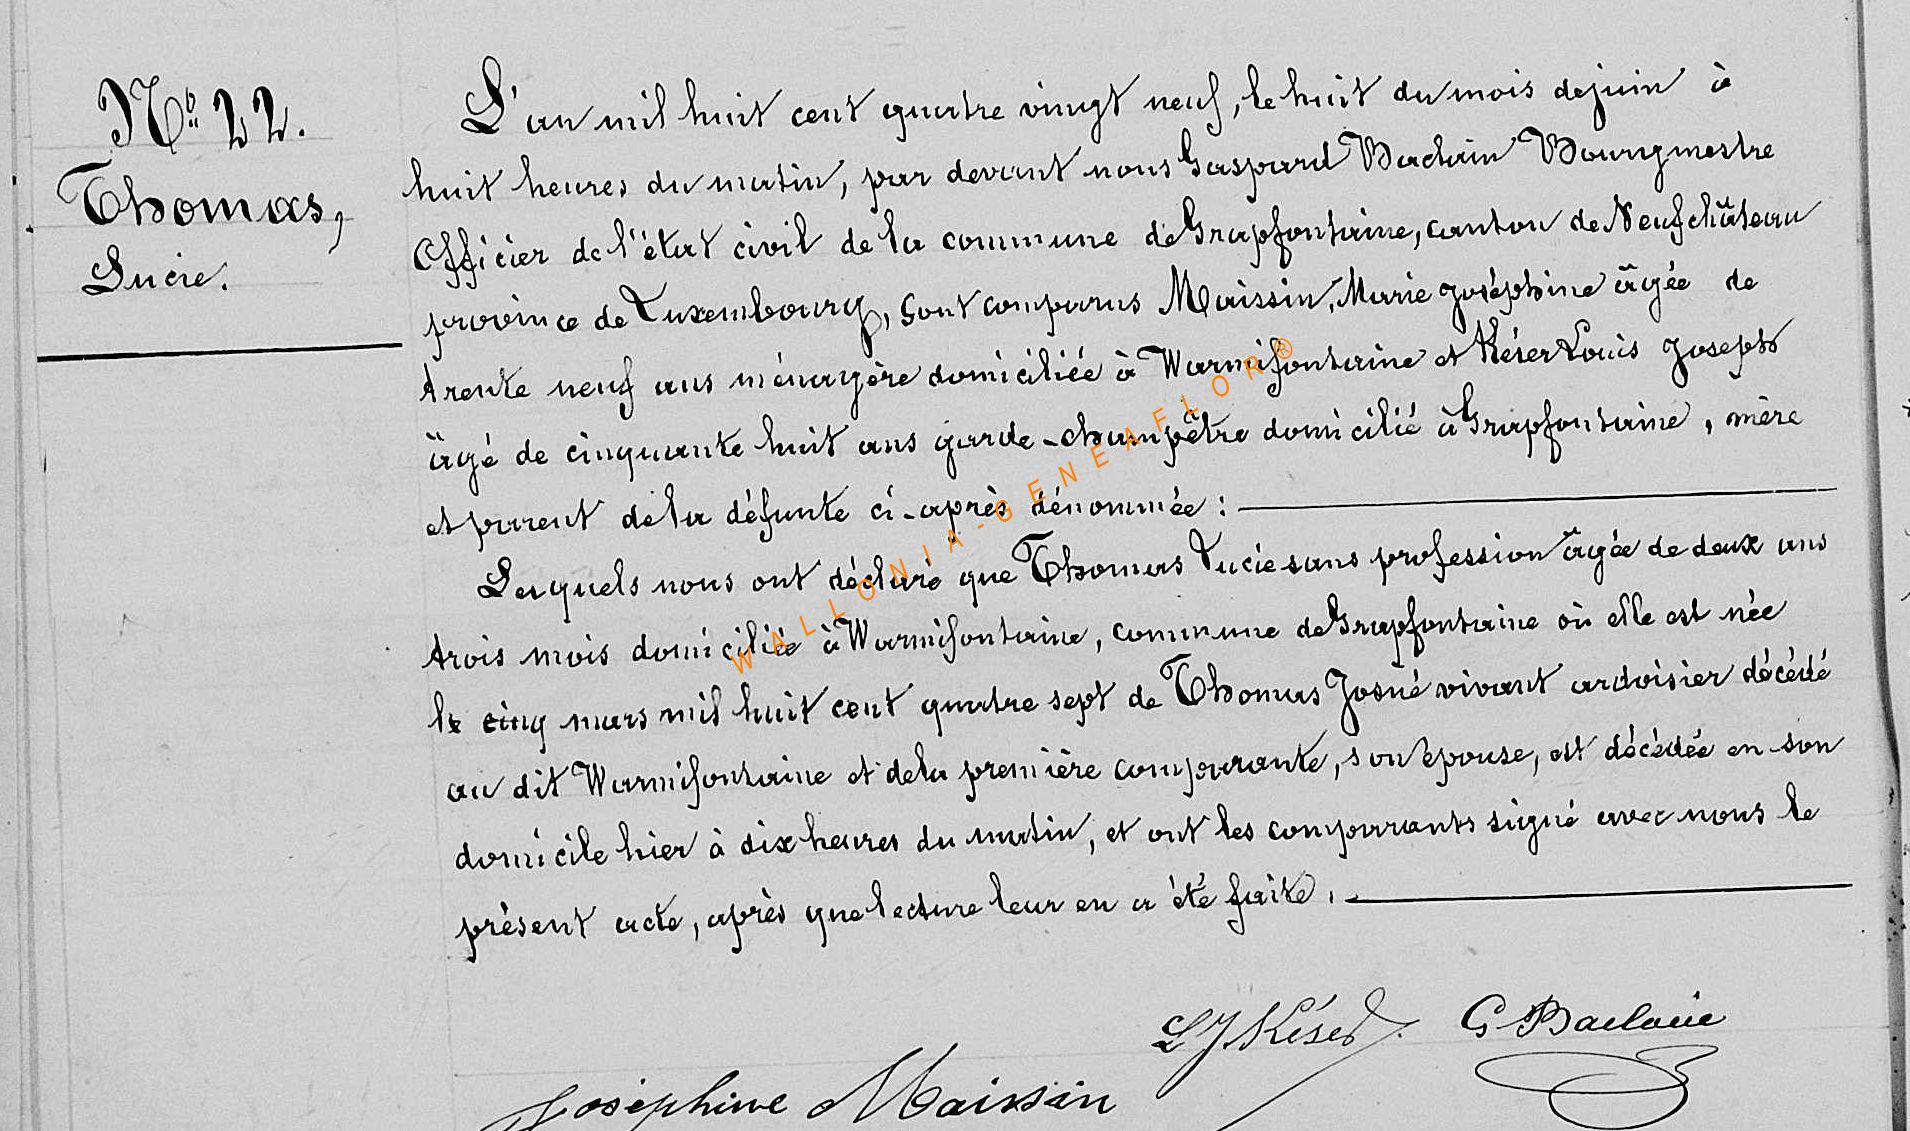 N° 22.
Thomas,
Lucie.
L'an mil huit cent quatre vingt neuf, le huit du mois de juin à
huit heures du matin, par devant nous Gaspard Baclain Bourgmestre
Officier de l'état civil de la commune de Grapfontaine, canton de Neufchâteau
province de Luxembourg, sont comparus Maissin, Marie Joséphine âgée de
trente neuf ans ménagère domiciliée à Warmifontaine et Késer Louis Joseph
âgé de cinquante huit ans garde-champêtre domicilié à Grapfontaine, mère
et parent de la défunte ci-après dénommée :
Lesquels nous ont déclaré que Thomas Lucie sans profession âgée de deux ans
trois mois domiciliée à Warmifontaine, commune de Grapfontaine où elle est née
le cinq mars mil huit cent quatre sept de Thomas Josué vivant ardoisier décédé
au dit Warmifontaine et de la première comparante, son épouse, est décédée en son
domicile hier à dix heures du matin, et ont les comparants signé avec nous le
présent acte, après que lecture leur en a été faite.
LJ Késer. G Baclain
Joséphine Maissin
WALLONIA-GENEAFLOR®